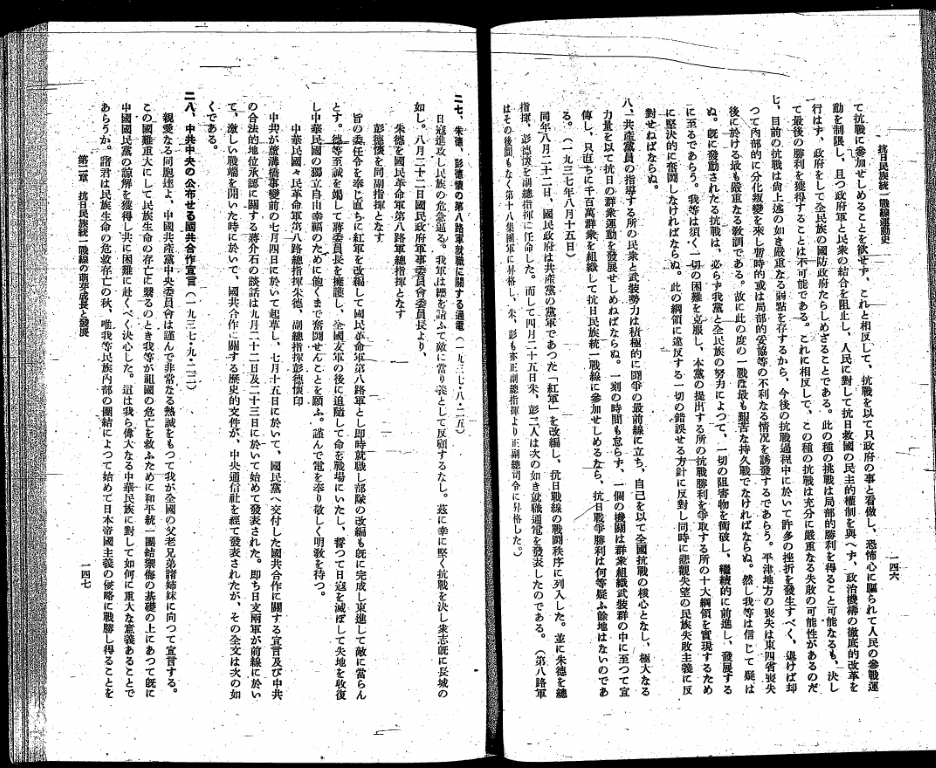 抗日民族統一戰線運動史
一四六
て抗戰に參加せしめることを欲せず、これと相反して、抗戰を以て只政府の事と看做し、恐怖心に驅られて人民の參戰運
動を制限し、且つ政府軍と民衆の結合を阻止し、人民に對して抗日救國の民主的權利を與へず、政治機構の徹底的改革を
行はず、政府をして全民族の國防政府たらしめざることである。此の種の抗戰は局部的勝利を得ること可能なるも、決し
て最後の勝利を獲得することは不可能である。これに相反して、この種の抗戰は充分に嚴重なる失敗の可能性があるのだ
七、目前の抗戰は尙上述の如き嚴重なる弱點を存するから、今後の抗戰過程中に於いて許多の挫折を發生すべく、退けば却
つて內部的に分化叛變を來し暫時的或は局部的妥協等の不利なる情況を誘發するであらう。平津地方の喪失は東四省喪失
後に於ける最も嚴重なる敎訓である。故に此の度の一戰は最も艱苦な持久戰でなければならぬ。然し我等は信じて疑は
ぬ。既に發動されたる抗戰は、必らず我黨と全民族の努力によつて、一切の阻害物を衝破し、繼續的に前進し、發展する
に至るであらう。我等は須く一切の困難を克服し、本黨の提出する所の抗戰勝利を爭取する所の十大綱領を實現するため
に堅決的に奮鬪しなければならぬ。此の綱領に違反する一切の錯誤せる方針に反對し同時に悲觀失望の民族失敗主義に反
對せねばならぬ。
八、共產黨員の指導する所の民衆と武裝勢力は積極的に鬪爭の最前線に立ち、自己を以て全國抗戰の核心となし、極大なる
力量を以て抗日の群衆運動を發展せしめねばならぬ。一刻の時間も怠らず、一個の機關は群衆組織武裝群の中に至つて宣
傳し、只直ちに千百萬群衆を組織して抗日民族統一戰線に參加せしめるなら、抗日戰爭勝利は何等疑ふ餘地はないのであ
る。(一九三七年八月十五日)
同年八月二十二日、國民政府は共產黨の黨軍であつた「紅軍」を改編し、抗日戰線の戰鬪秩序に列入した。並に朱德を總
指揮、彭德懷を副總指揮に任命した。而して四月二十五日朱、彭二人は次の如き就職通電を發表したのである。(第八路軍
はその後間もなく第十八集團軍に昇格し、朱、彭も亦正副總指揮より正副總司令に昇格した。)
二七、朱德、彭德懷の第八路軍就職に關する通電(一九三七・八・二五)
日寇進攻し民族の危急迫る。我軍は纓を請ふて敵に當り義として反顧するなし。茲に幸に堅く抗戰を決し朱志旣に長城の
如し。八月二十二日國民政府軍事委員會委員長より、
朱德を國民革命軍第八路軍總指揮となす
彭德懷を同副指揮となす
旨の委任令を奉じ直ちに紅軍を改編して國民革命軍第八路軍とし卽時就職し部隊の改編も旣に完成し東進して敵に當らん
とす。德等至誠を竭して蔣委員長を擁護し、全國友軍の後に追隨して命を戰場にいたし、誓つて日寇を滅ぼして失地を收復
し中華民國の獨立自由幸福のために飽くまで奮鬪せんことを願ふ。謹んで電を奉り敬しく明敎を待つ。
中華民國々民革命軍第八路總指揮朱德、副總指揮彭德懷印
中共が蘆溝橋事變前の七月四日に於いて起草し、七月十五日に於いて、國民黨へ交付した國共合作に關する宣言及び中共
の合法的地位承認に關する蔣介石の談話は九月二十二日及二十三日に於いて始めて發表された。卽ち日支兩軍が前線に於い
て、激しい戰端を開いた時に於いて、國共合作に關する歷史的文件が、中央通信社を經て發表されたが、その全文は次の如
くである。
二八、中共中央の公布せる國共合作宣言(一九三七・九・二二)
親愛なる同胞達よ、中國共產黨中央委員會は謹んで非常なる熱誠をもつて我が全國の父老兄弟諸姉妹に向つて宣言する。
この國難重大にして民族生命の存亡に繫るのとき我等が祖國の危亡を救ふために和平統一團結禦侮の基礎の上にあつて旣に
中國國民黨の諒解を獲得し共に困難に赴くべく決心した。這は我ら偉大なる中華民族に對して如何に重大な意義あることで
あらうか。諸君は民族生命の危救存亡の秋、唯我等民族內部の團結によつて始めて日本帝國主義の侵略に戰勝し得ることを
第二章 抗日民族統一戰線の明的成長と發展
一四七